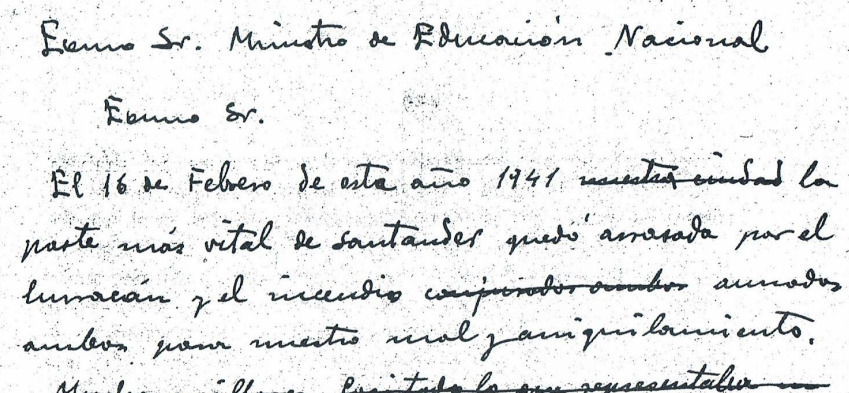 Exmo Sr. Ministro de Educación Nacional
Exmo Sr.
El 16 de Febrero de este año 1941 nuestra ciudad la
parte más vital de Santander quedó arrasada por el
huracán y el incendio conjurados ambos aunados
ambos para nuestro mal y aniquilamiento.
lo que representaba